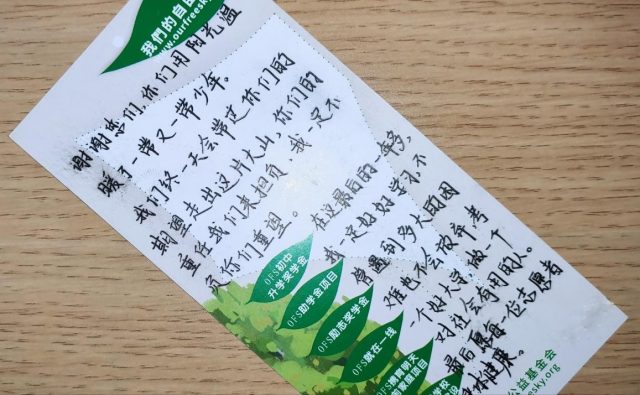 我們的自由
www.ourfreesky.
谢谢您们,你们用阳光温
暖了一带又一带少年。
我们终一天会带过你们的
期望走出这片大山,你们的
重任我们来担负,我一定不
反你们重望。
在这最后的一年多,
我一定好好学习,不
管遇到多大的困
难也不会放弃考
一个好大学,做一个
对社会有用的人。
最后愿每一位志愿者
身体健康。
OFS初中
升学奖学金
OFS助学金项目
OFS励志奖学金
OFS就在一线
OFS携育明天
家庭项目
学校
公益基金会
freesky.org